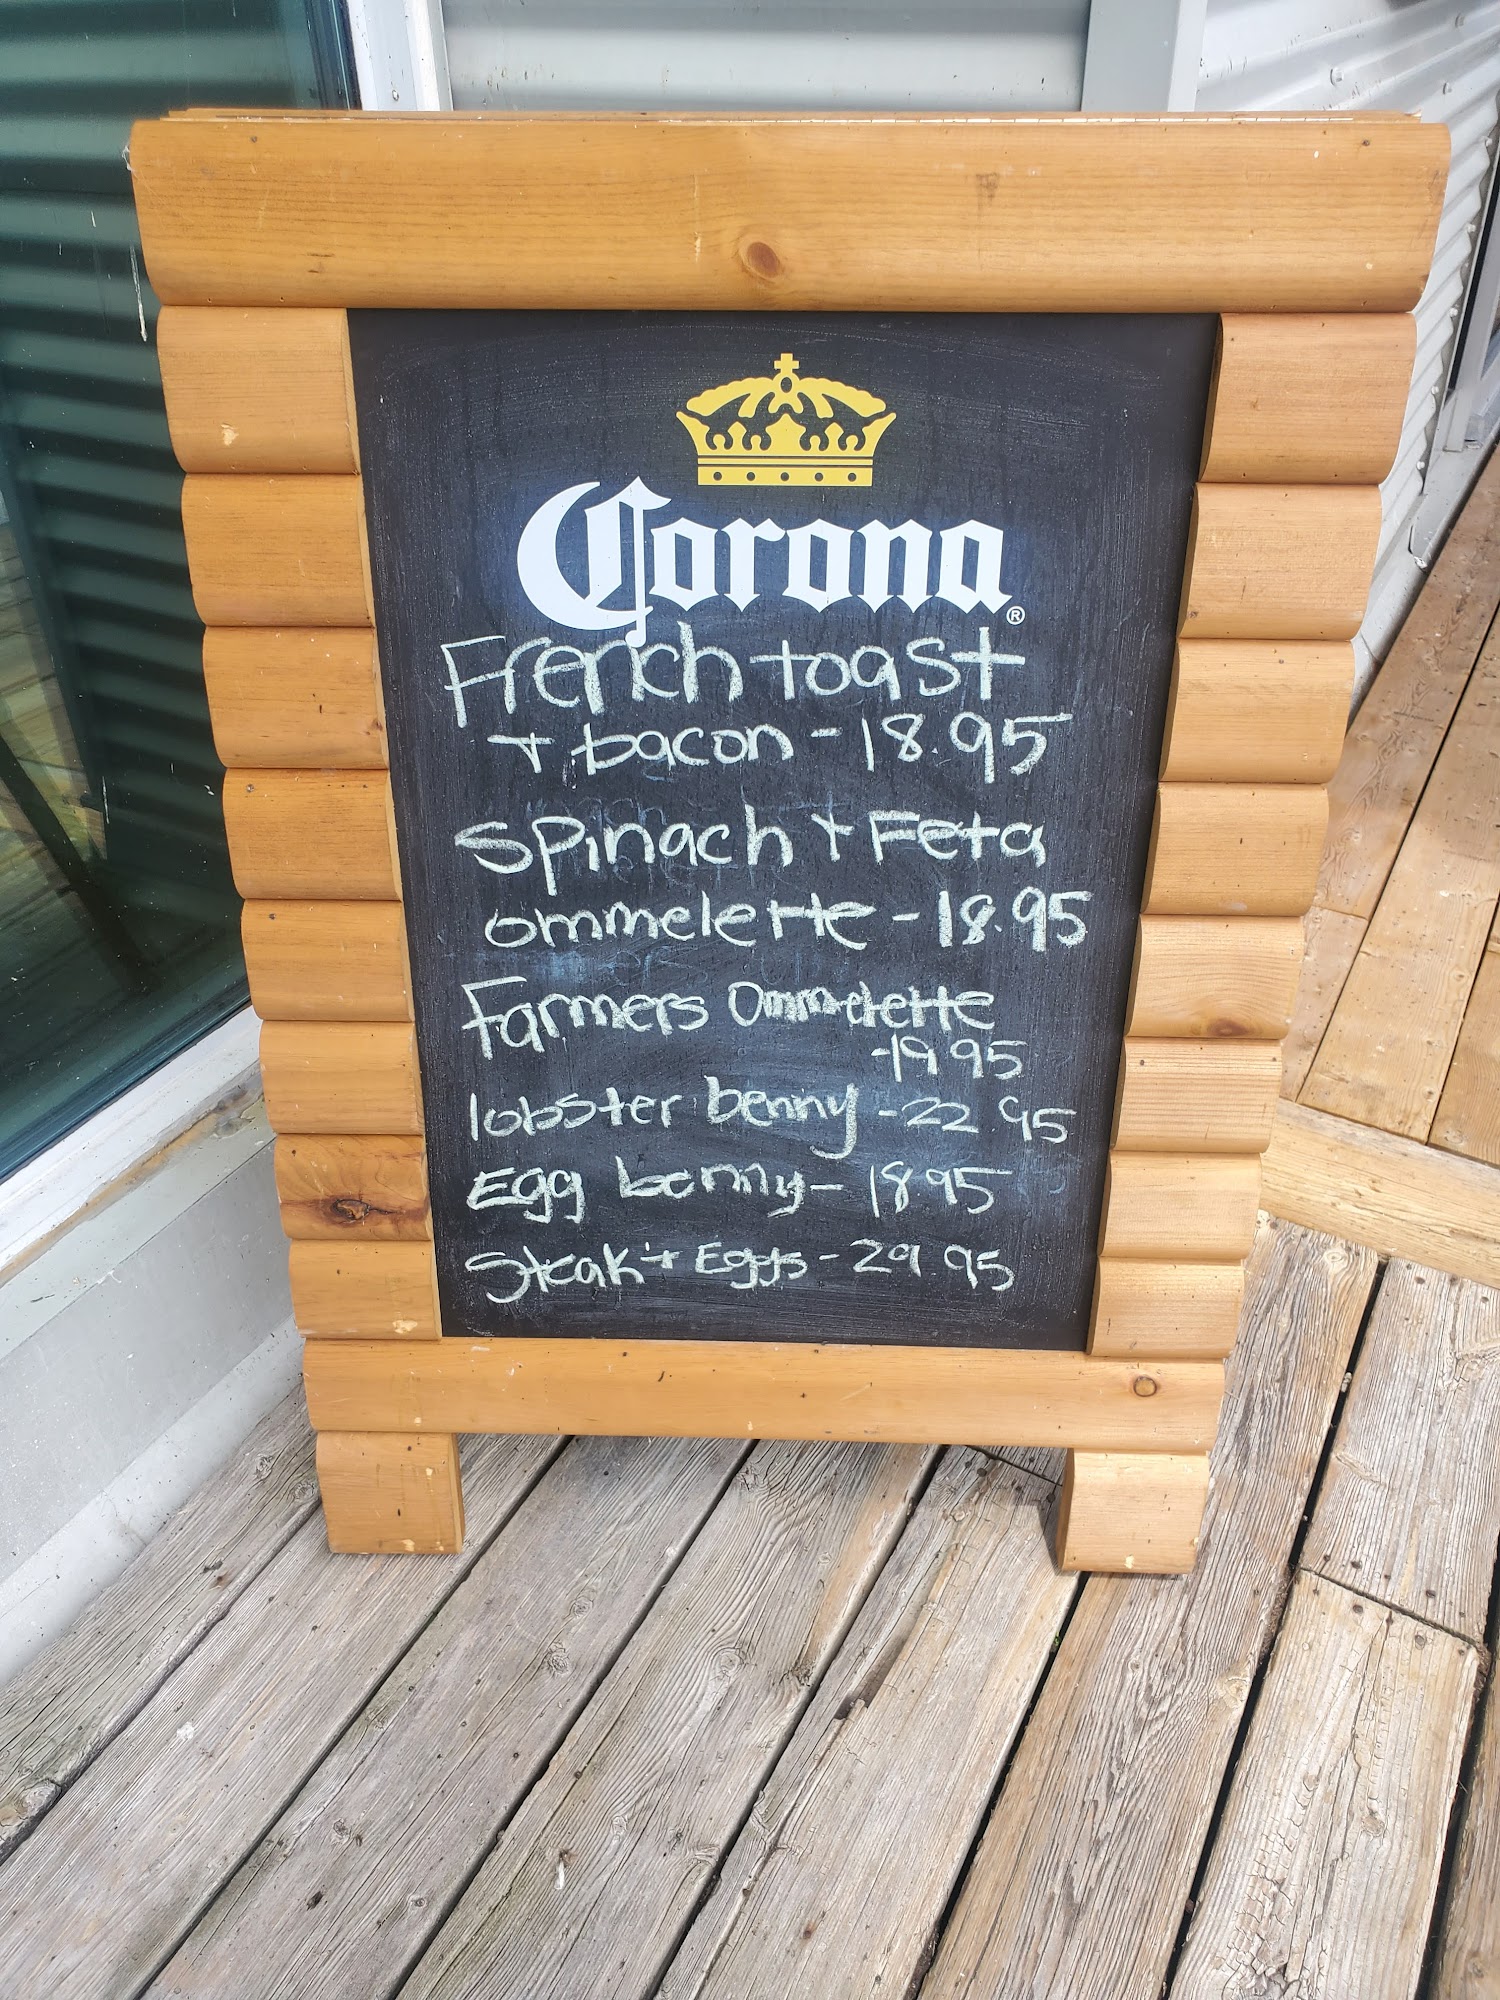 Corona®
French toast
+ bacon - 18.95
Spinach + Feta
ommelette - 18.95
Farmers Ommelette
- 19 95
lobster benny - 22.95
Egg benny - 18.95
Steak + Eggs - 29 95